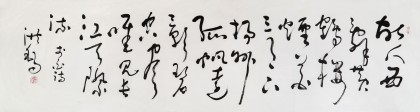 故人西
辭黃
鶴樓
煙花
三月下
揚州
孤帆遠
影碧
空盡
唯見長
江天際
流 李白詩